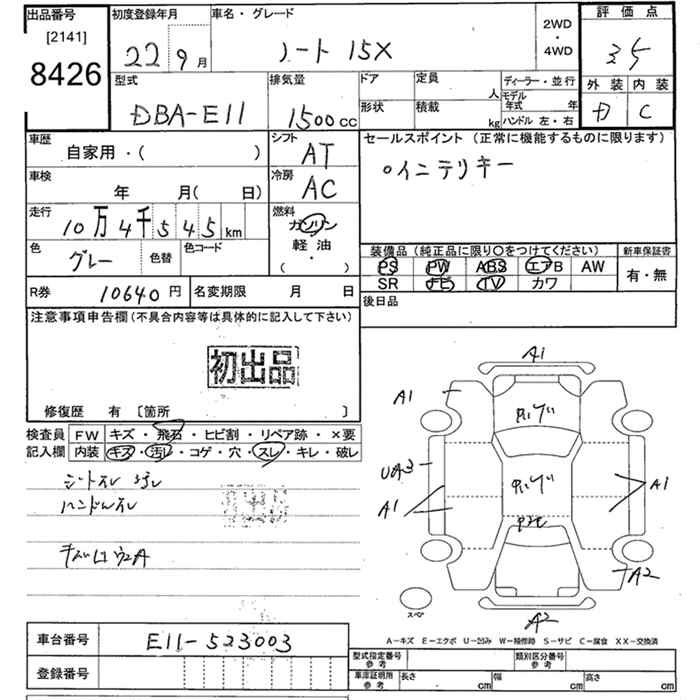 出品番号 初度登録年月 車名・グレード 2WD・4WD 評価点
[2141]
8426 22 9月 ノート 15X 35
型式 排気量 ドア 定員 人 ディーラー・並行 外装 内装
DBA-E11 1500cc 形状 積載 kg モデル年式 年 ハンドル 左・右 D C
車歴 自家用・( ) シフト AT セールスポイント (正常に機能するものに限ります)
車検 年 月( 日) 冷房 AC ○インテリキー
走行 10万4千545km 燃料 ガソリン
軽油
( ・ )
色 グレー 色替 色コード
装備品 (純正品に限り○をつけてください) 新車保証書
PS PW ABS エアB AW 有・無
SR ナビ TV カワ
R券 10640円 名変期限 月 日 後日品
注意事項申告欄(不具合内容等は具体的に記入して下さい)
初出品
修復歴 有 〔箇所 〕
検査員 FW キズ・飛石・ヒビ割・リペア跡・×要
記入欄 内装 キズ・汚レ・コゲ・穴・スレ・キレ・破レ
ハンドルスレ
A1
A1
UA3
A1
A1
A2
A2
スペア
A-キズ E-エクボ U-凹み W-補修跡 S-サビ C-腐食 XX-交換済
車台番号 E11-523003
登録番号
型式指定番号 参考 類別区分番号 参考
車庫証明用 参考 長さ cm 幅 cm 高さ cm